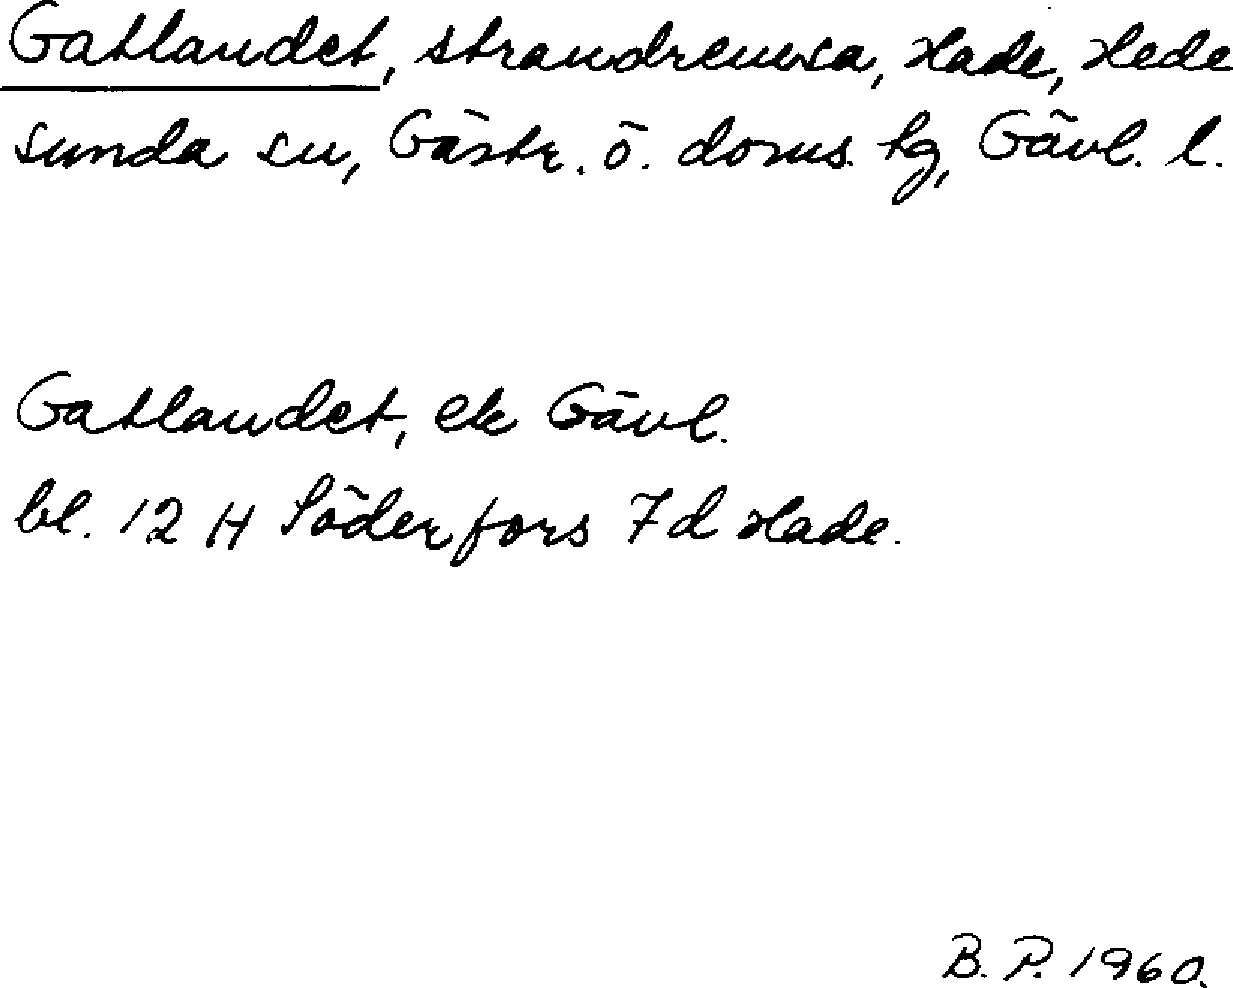 Gatlandet, strandremsa, Hade, Hede
sunda sn, Gästr. ö. doms. tg, Gävl. l.
Gatlandet, ek Gävl.
bl. 12 H Söderfors 7d Hade.
B. P. 1960.